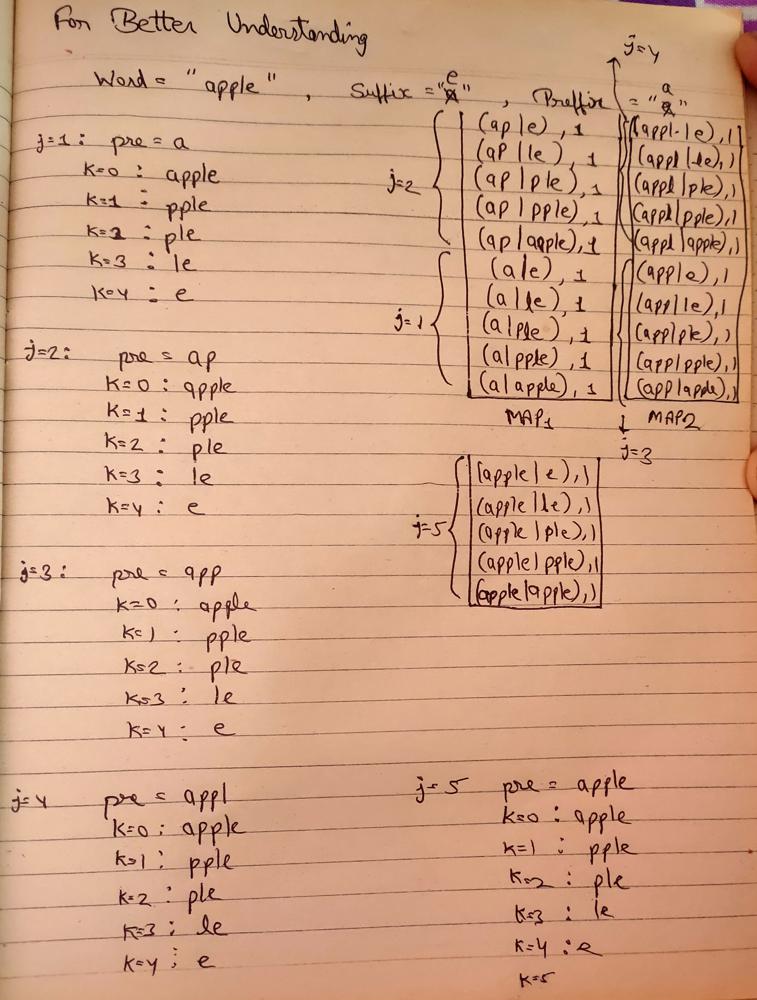 For Better Understanding
Word = "apple" , Suffix = "e" , Preffix = "a"
j=1 : pre = a
K=0 : apple
K=1 : pple
K=2 : ple
K=3 : le
K=4 : e
j=2 : pre = ap
K=0 : apple
K=1 : pple
K=2 : ple
K=3 : le
K=4 : e
j=3 : pre = app
K=0 : apple
K=1 : pple
K=2 : ple
K=3 : le
K=4 : e
j=4 pre = appl
K=0 : apple
K=1 : pple
K=2 : ple
K=3 : le
K=4 : e
j=2
(ap|e), 1
(ap|le), 1
(ap|ple), 1
(ap|pple), 1
(ap|apple), 1
j=1
(a|e), 1
(a|le), 1
(a|ple), 1
(a|pple), 1
(a|apple), 1
MAP1
j=4
(appl|e), 1
(appl|le), 1
(appl|ple), 1
(appl|pple), 1
(appl|apple), 1
(app|e), 1
(app|le), 1
(app|ple), 1
(app|pple), 1
(app|apple), 1
MAP2
j=3
j=5
(apple|e), 1
(apple|le), 1
(apple|ple), 1
(apple|pple), 1
(apple|apple), 1
j=5 pre = apple
K=0 : apple
K=1 : pple
K=2 : ple
K=3 : le
K=4 : e
K=5